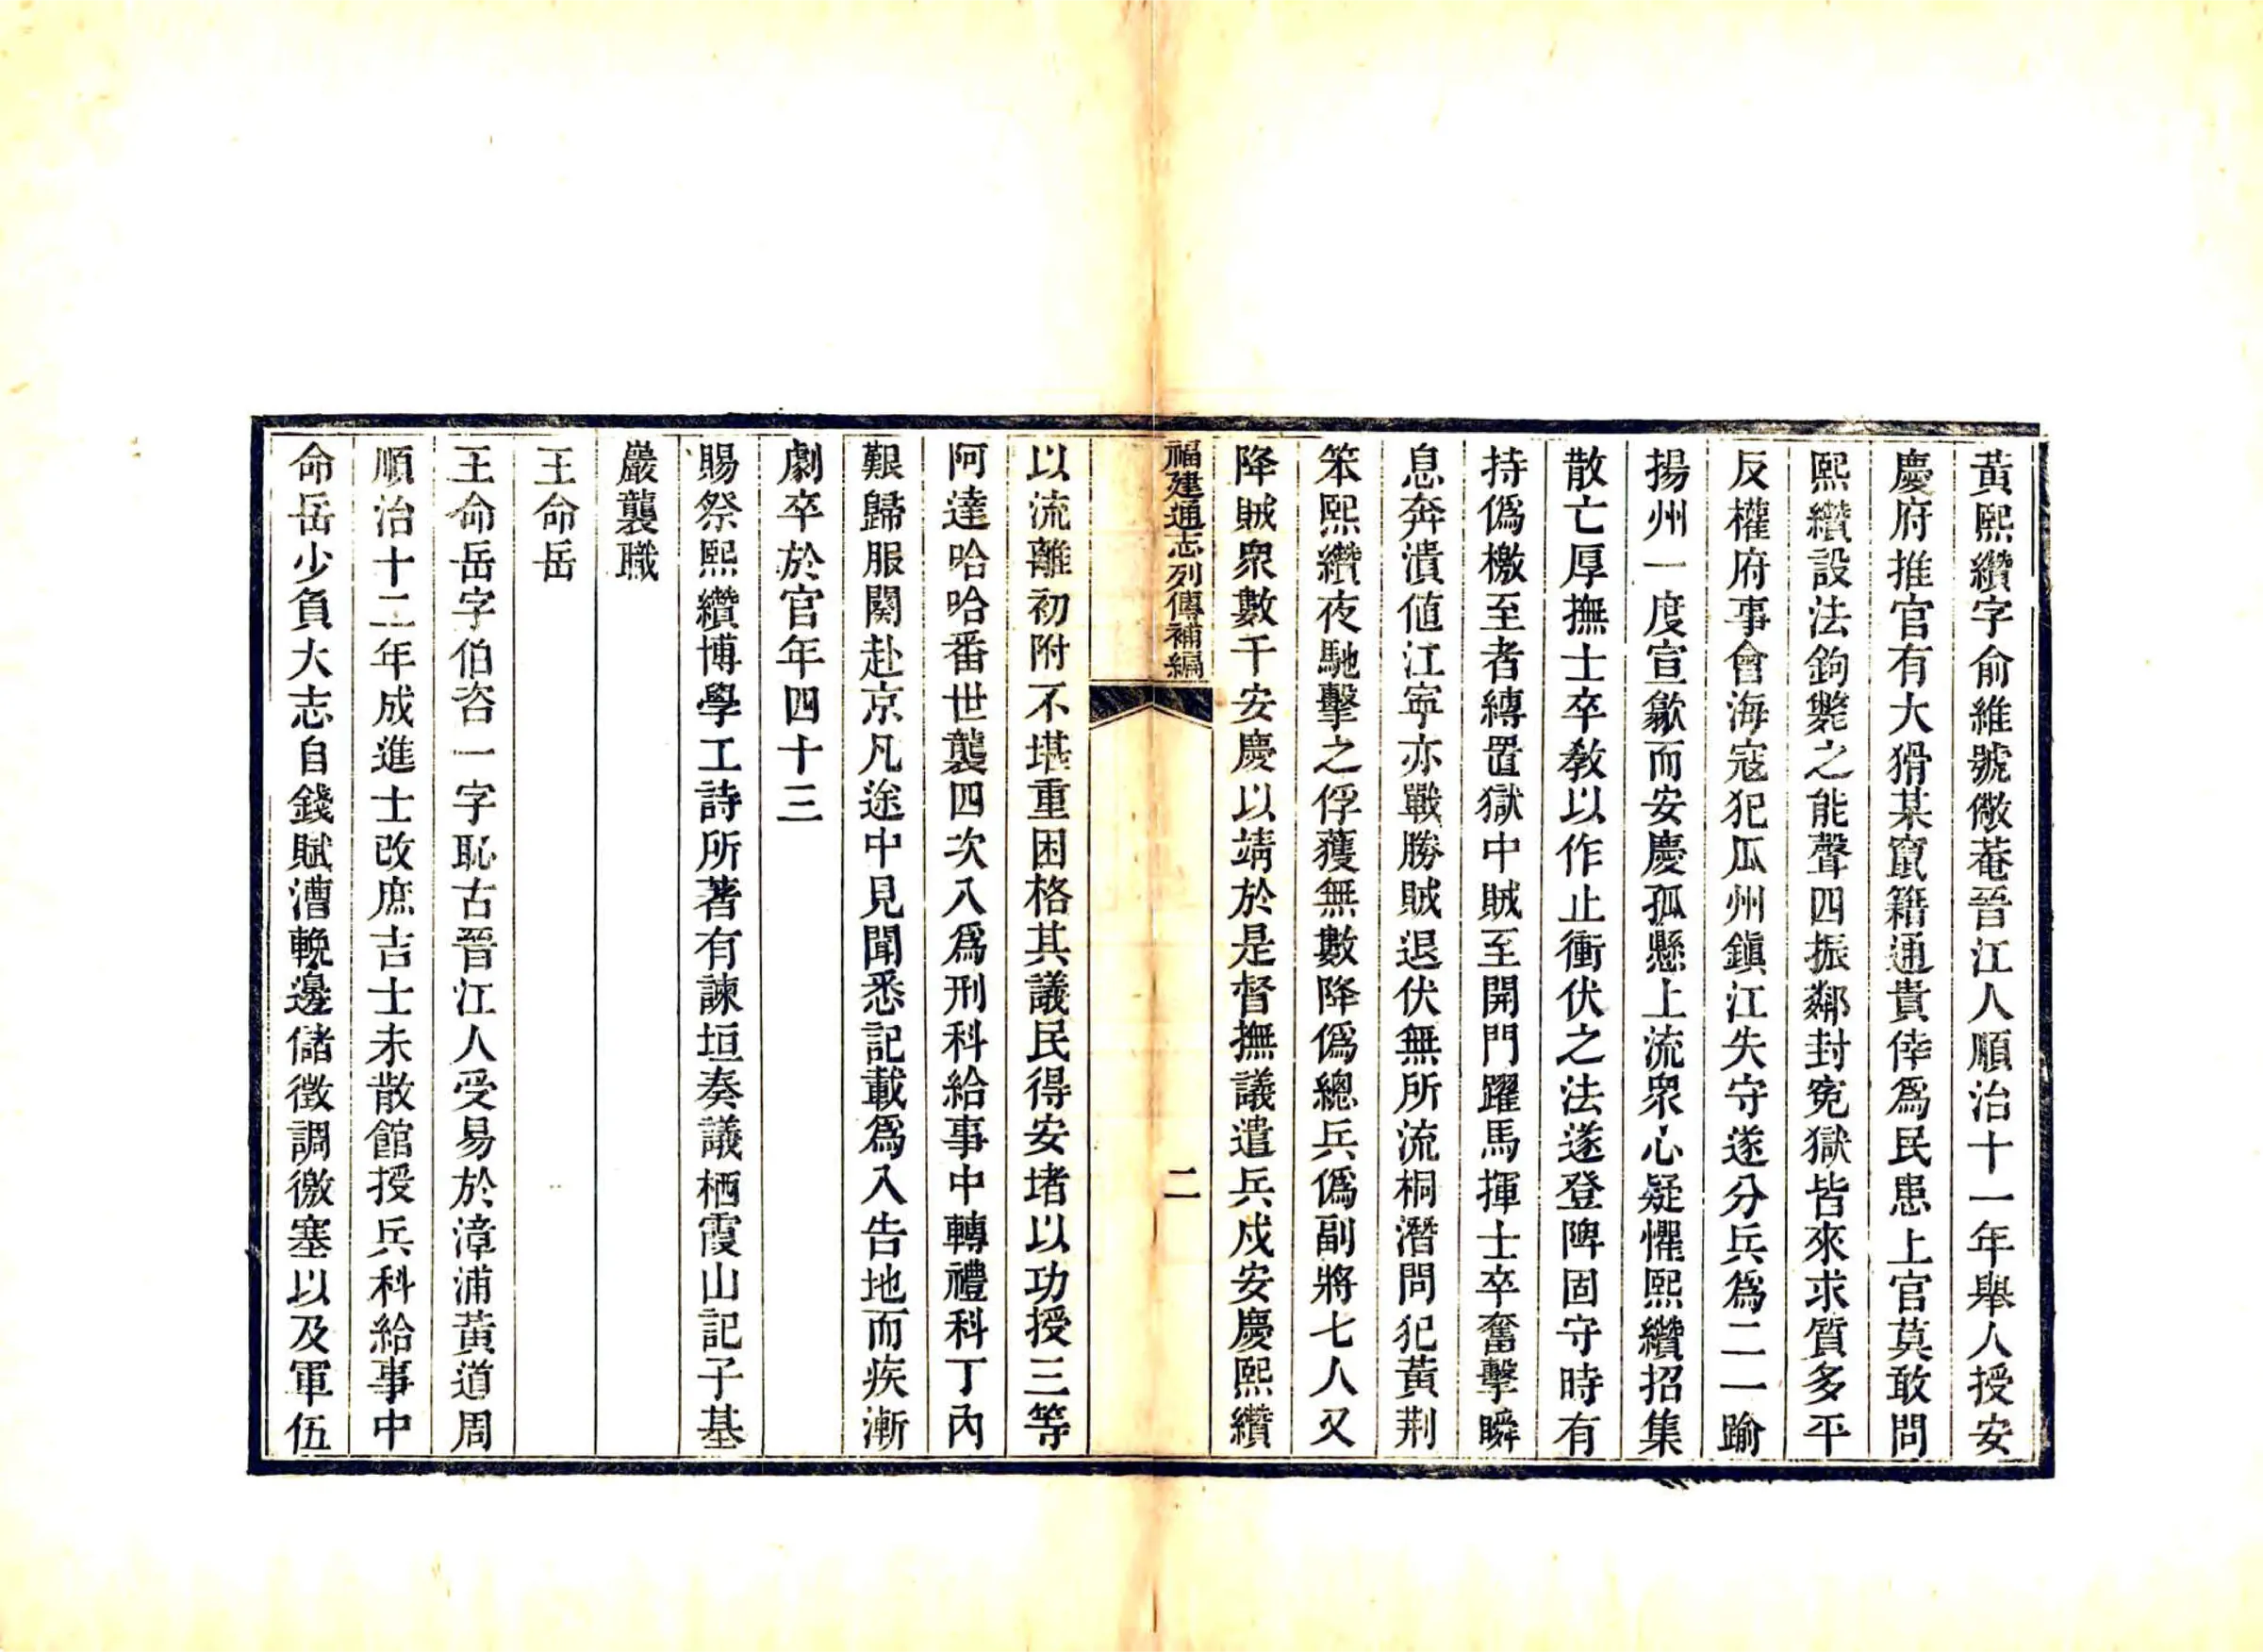 黃熙纘字俞維號儆菴晉江人順治十一年舉人授安
慶府推官有大猾某竄籍通貴倖爲民患上官莫敢問
熙纘設法鉤斃之能聲四振鄰封寃獄皆來求質多平
反權府事會海寇犯瓜州鎭江失守遂分兵爲二一踰
揚州一度宣歙而安慶孤懸上流衆心疑懼熙纘招集
散亡厚撫士卒敎以作止衝伏之法遂登陴固守時有
持僞檄至者縛置獄中賊至開門躍馬揮士卒奮擊瞬
息奔潰値江寧亦戰勝賊退伏無所流桐潛問犯黃荆
笨熙纘夜馳擊之俘獲無數降僞總兵僞副將七人又
降賊衆數千安慶以靖於是督撫議遣兵戍安慶熙纘
福建通志列傳補編
二
以流離初附不堪重困格其議民得安堵以功授三等
阿達哈哈番世襲四次入爲刑科給事中轉禮科丁內
艱歸服闋赴京凡途中見聞悉記載爲入告地而疾漸
劇卒於官年四十三
賜祭熙纘博學工詩所著有諫垣奏議栖霞山記子基
巖襲職
王命岳
王命岳字伯咨一字恥古晉江人受易於漳浦黃道周
順治十二年成進士改庶吉士未散館授兵科給事中
命岳少負大志自錢賦漕輓邊儲徵調徼塞以及軍伍